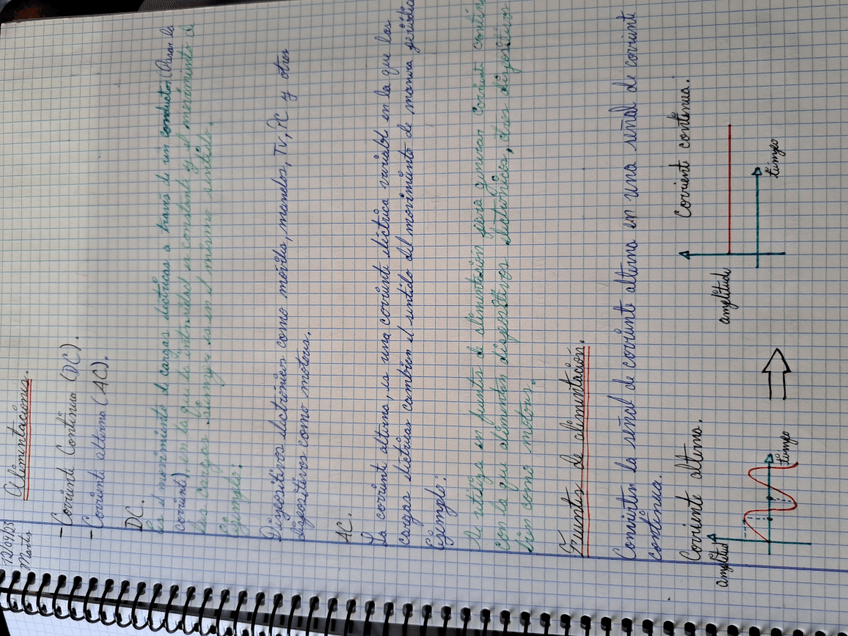 Martes
Alimentaciones.
- Corriente Continua (DC).
- Corriente alterna (AC).
DC.
Es el movimiento de cargas eléctricas a través de un conductor
corriente), en la que la intensidad es constante y el movimiento d
las cargas siempre es en el mismo sentido.
Ejemplo:
Dispositivos electrónicos como móviles, mandos, TV, PC y otros
dispositivos como motores.
AC.
La corriente alterna, es una corriente eléctrica variable en la que las
cargas eléctricas cambian el sentido del movimiento de manera periódica
Ejemplo:
Se utiliza en fuentes de alimentación para generar corriente contin
con la que alimentar dispositivos electrónicos, dispositivos
como motores.
Fuentes de alimentación.
Convierten la señal de corriente alterna en una señal de corriente
continua.
Corriente alterna.
Corriente continua.
amplitud
tiempo
amplitud
tiempo